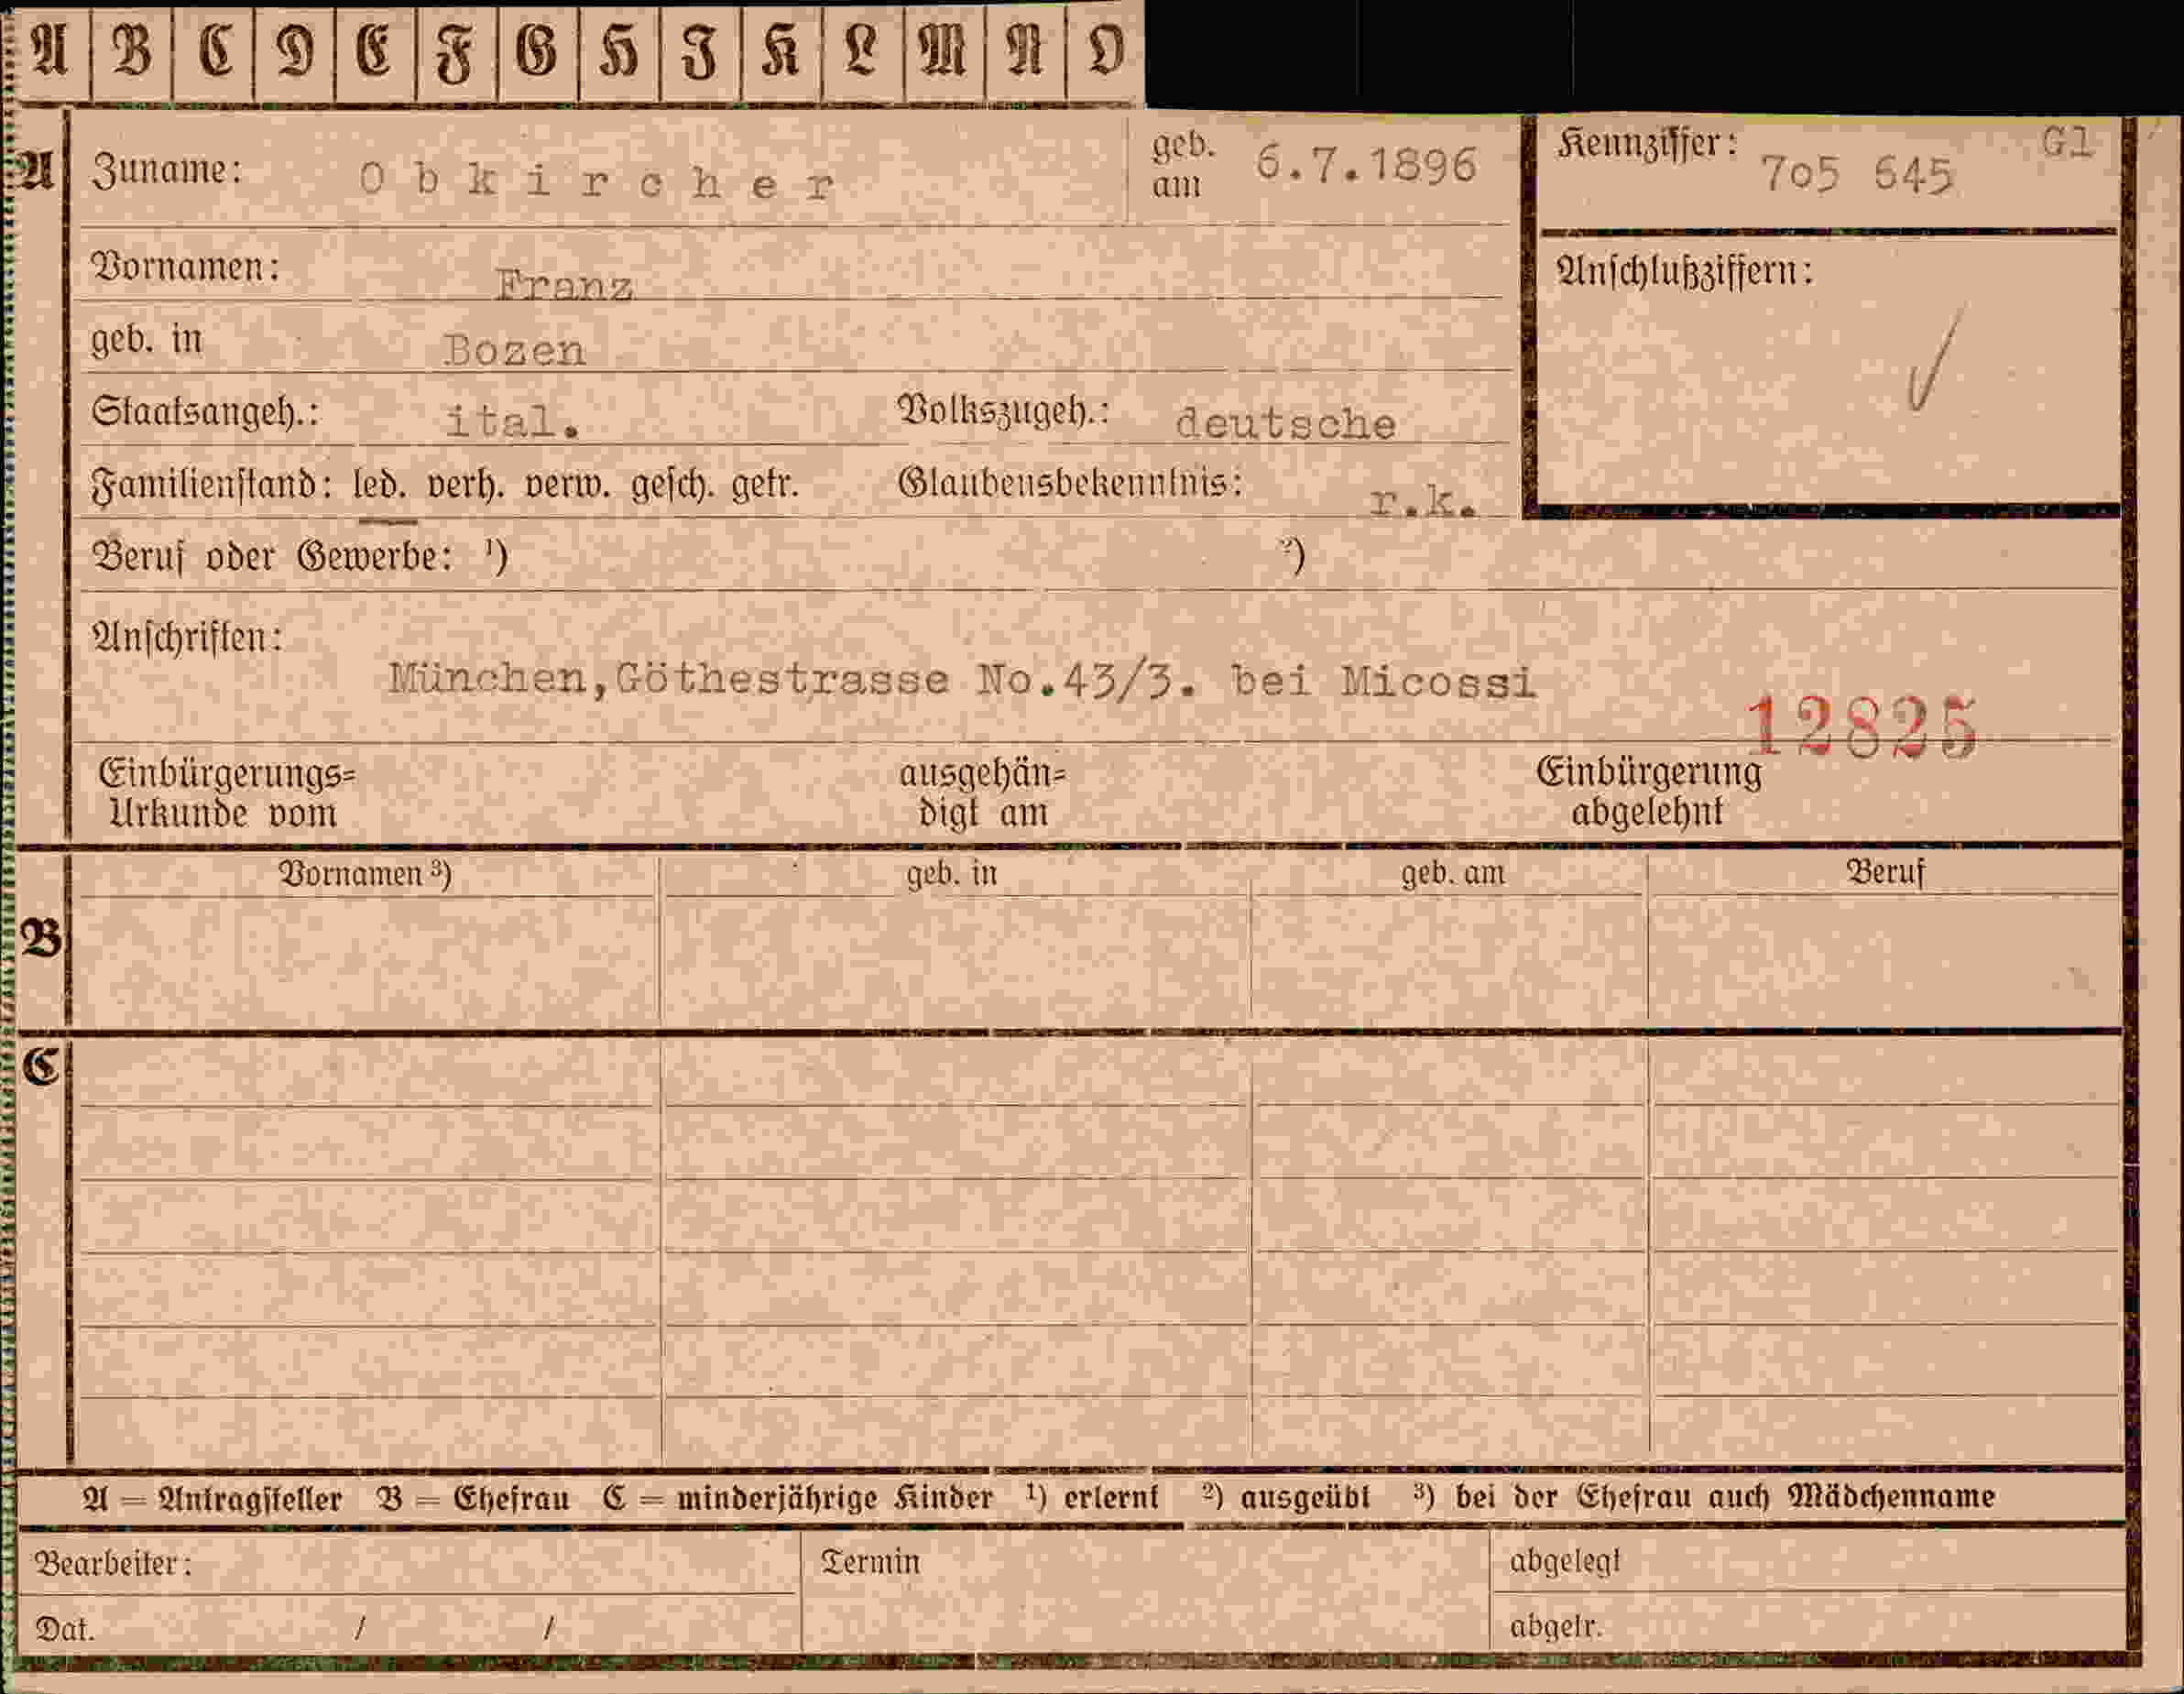 A B C D E F G H I K L M N O
A Zuname: Obkircher geb. am 6.7.1896 Kennziffer: 705 645 Gl
Vornamen: Franz Anschlußziffern:
geb. in Bozen
Staatsangeh.: ital. Volkszugeh.: deutsche
Familienstand: led. verh. verw. gesch. getr. Glaubensbekenntnis: r.k.
Beruf oder Gewerbe: ¹) ²)
Anschriften:
München,Göthestrasse No.43/3. bei Micossi
12825
Einbürgerungs= ausgehän= Einbürgerung
Urkunde vom digt am abgelehnt
Vornamen ³) geb. in geb. am Beruf
B
C
A = Antragsteller B = Ehefrau C = minderjährige Kinder ¹) erlernt ²) ausgeübt ³) bei der Ehefrau auch Mädchenname
Bearbeiter: Termin abgelegt
Dat. / / abgetr.